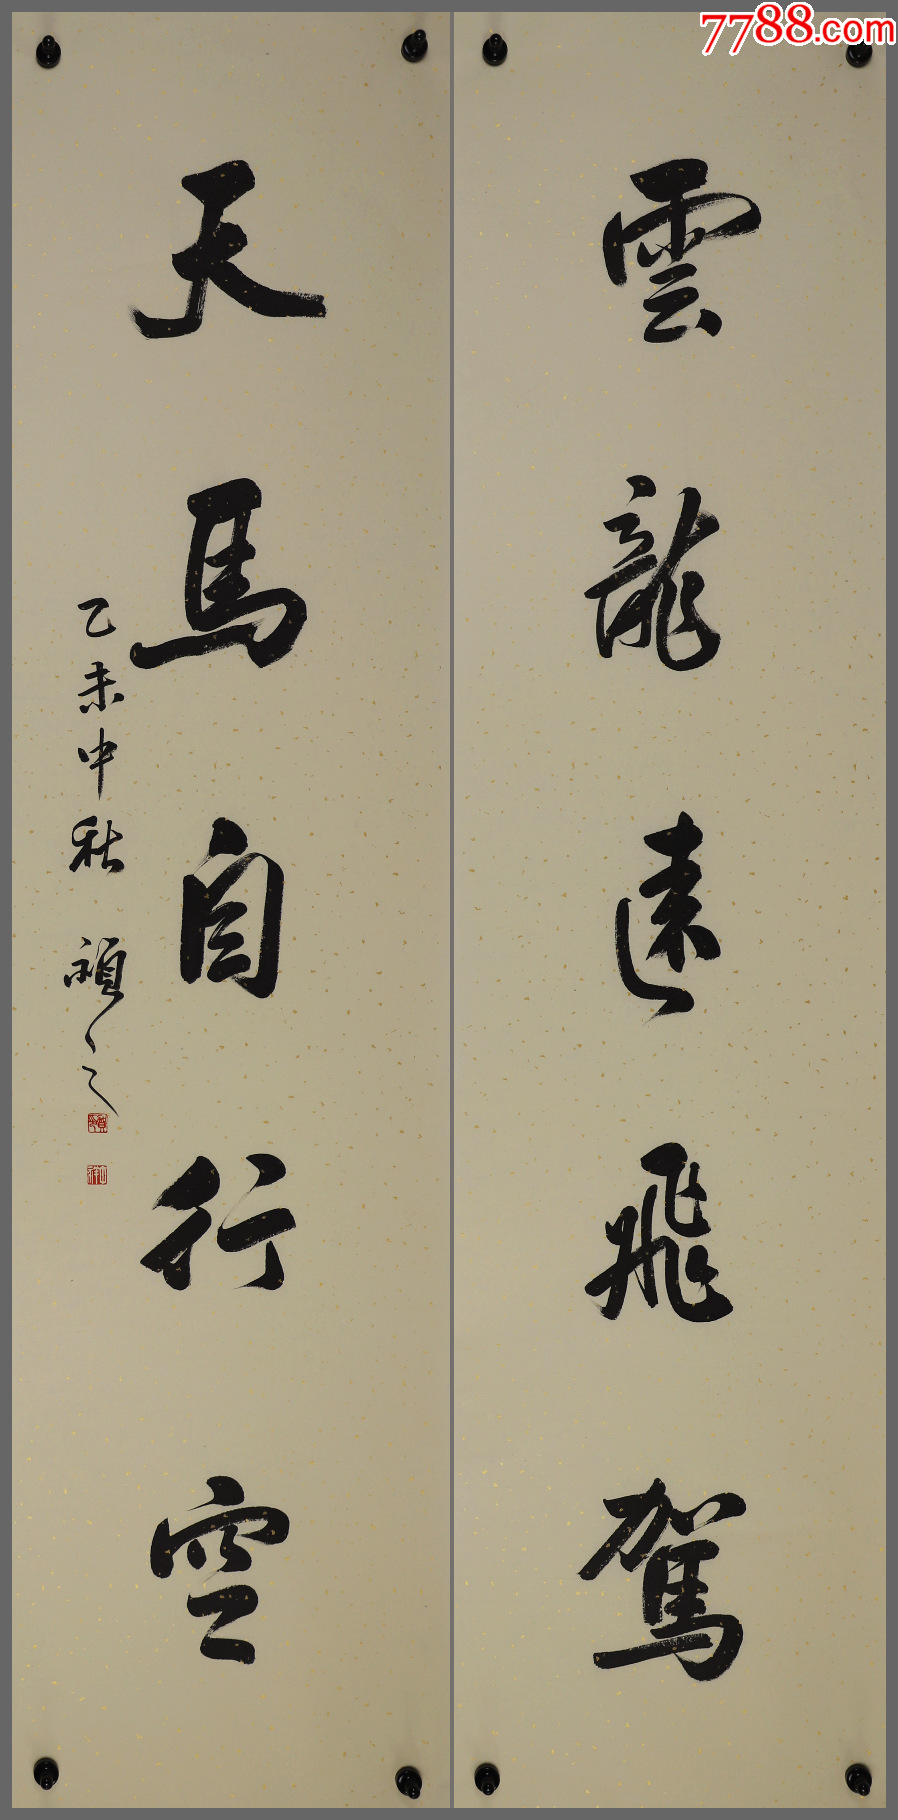 7788.com
雲龍遠飛駕
天馬自行空
乙未中秋